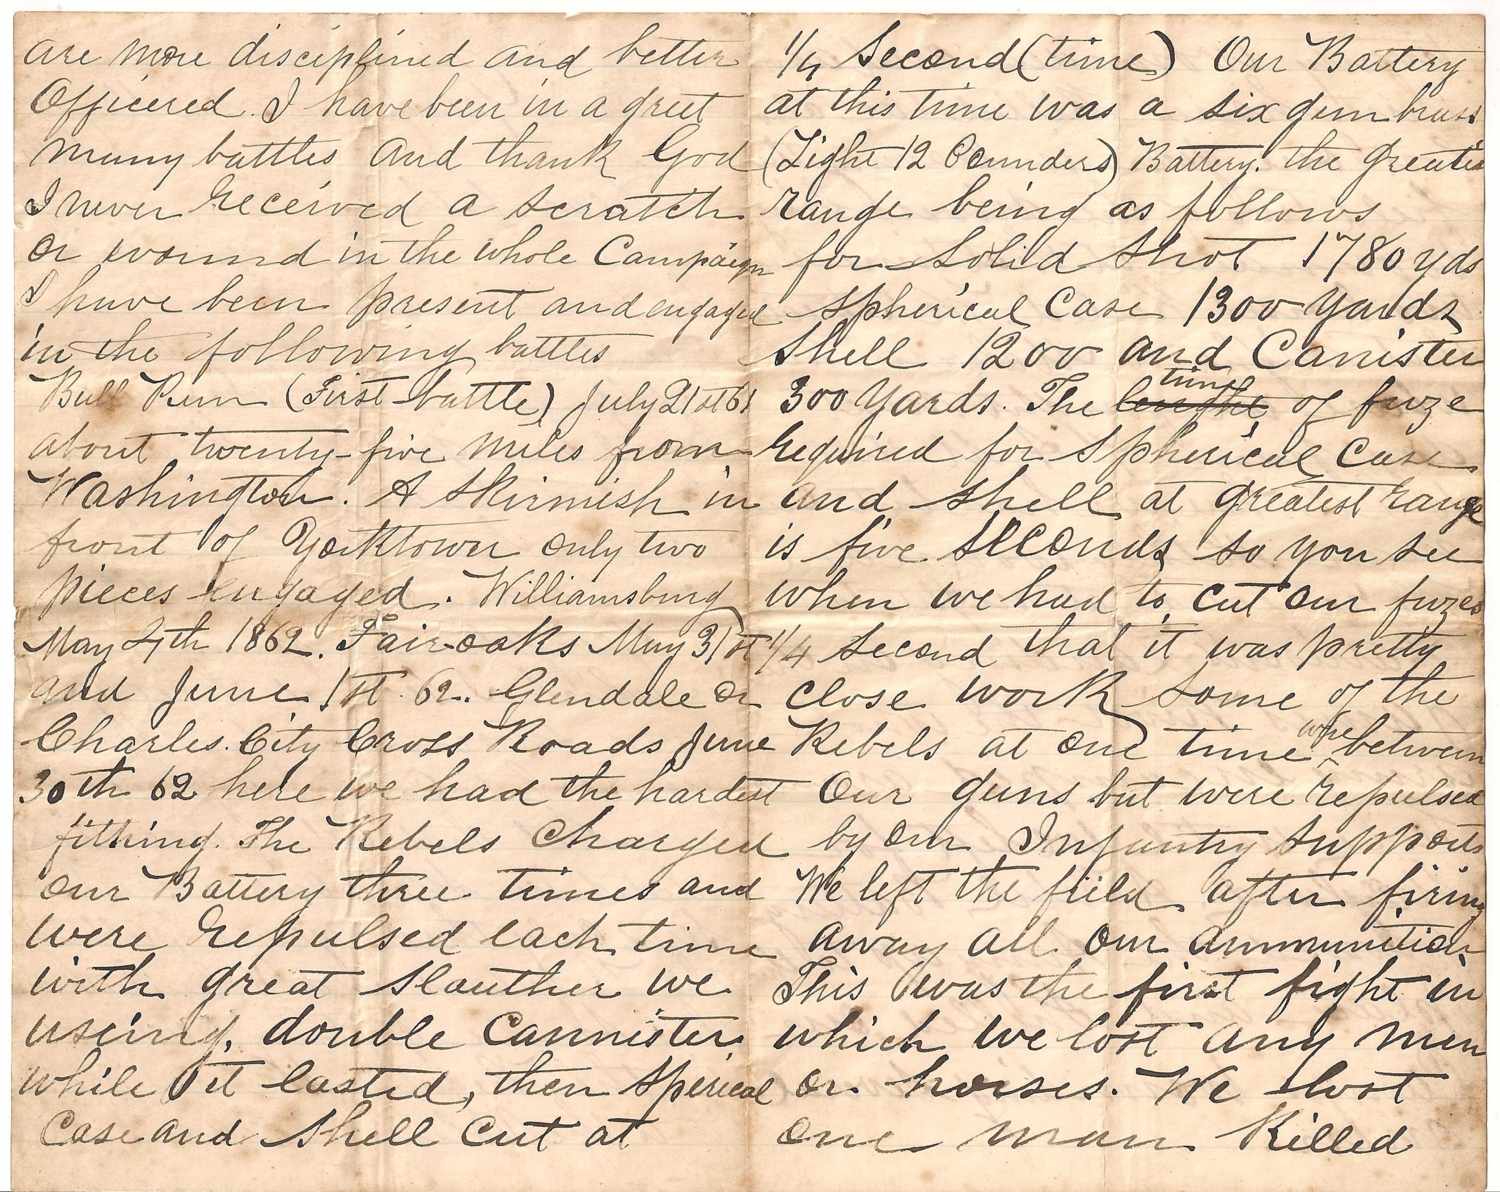 are more disciplined and better
Officered. I have been in a greet
many battles and thank God
I never received a scratch
or wound in the whole Campaign
I have been present and engaged
in the following battles
Bull Run (First battle) July 21st 61
about twenty-five miles from
Washington. A skirmish in
front of Yorktown only two
pieces engaged. Williamsburg
May 4th 1862. Fair-oaks May 31st
and June 1st. 62. Glendale or
Charles. City Cross Roads June
30th 62 here we had the hardest
fithing. The Rebels Charged
our Battery three times and
were repulsed each time
with great slauther we
useing, double Cannister
while it lasted, then Sperical
Case and Shell cut at
1/4 Second (time) Our Battery
at this time was a six gun brass
(Light 12 Pounders) Battery. the greatest
range being as follows
for Solid Shot 1780 yds
Spherical Case 1300 yards
Shell 1200 and Canister
300 yards. The time lenght of fuze
required for Spherical Case
and shell at greatest range
is five seconds so you see
when we had to cut our fuzes
1/4 Second that it was pretty
close work some of the
Rebels at one time were between
our guns but were repulsed
by our Infantry supports
We left the field after firing
away all our ammunition
This was the first fight in
which we lost any men
or horses. We lost
one man Killed